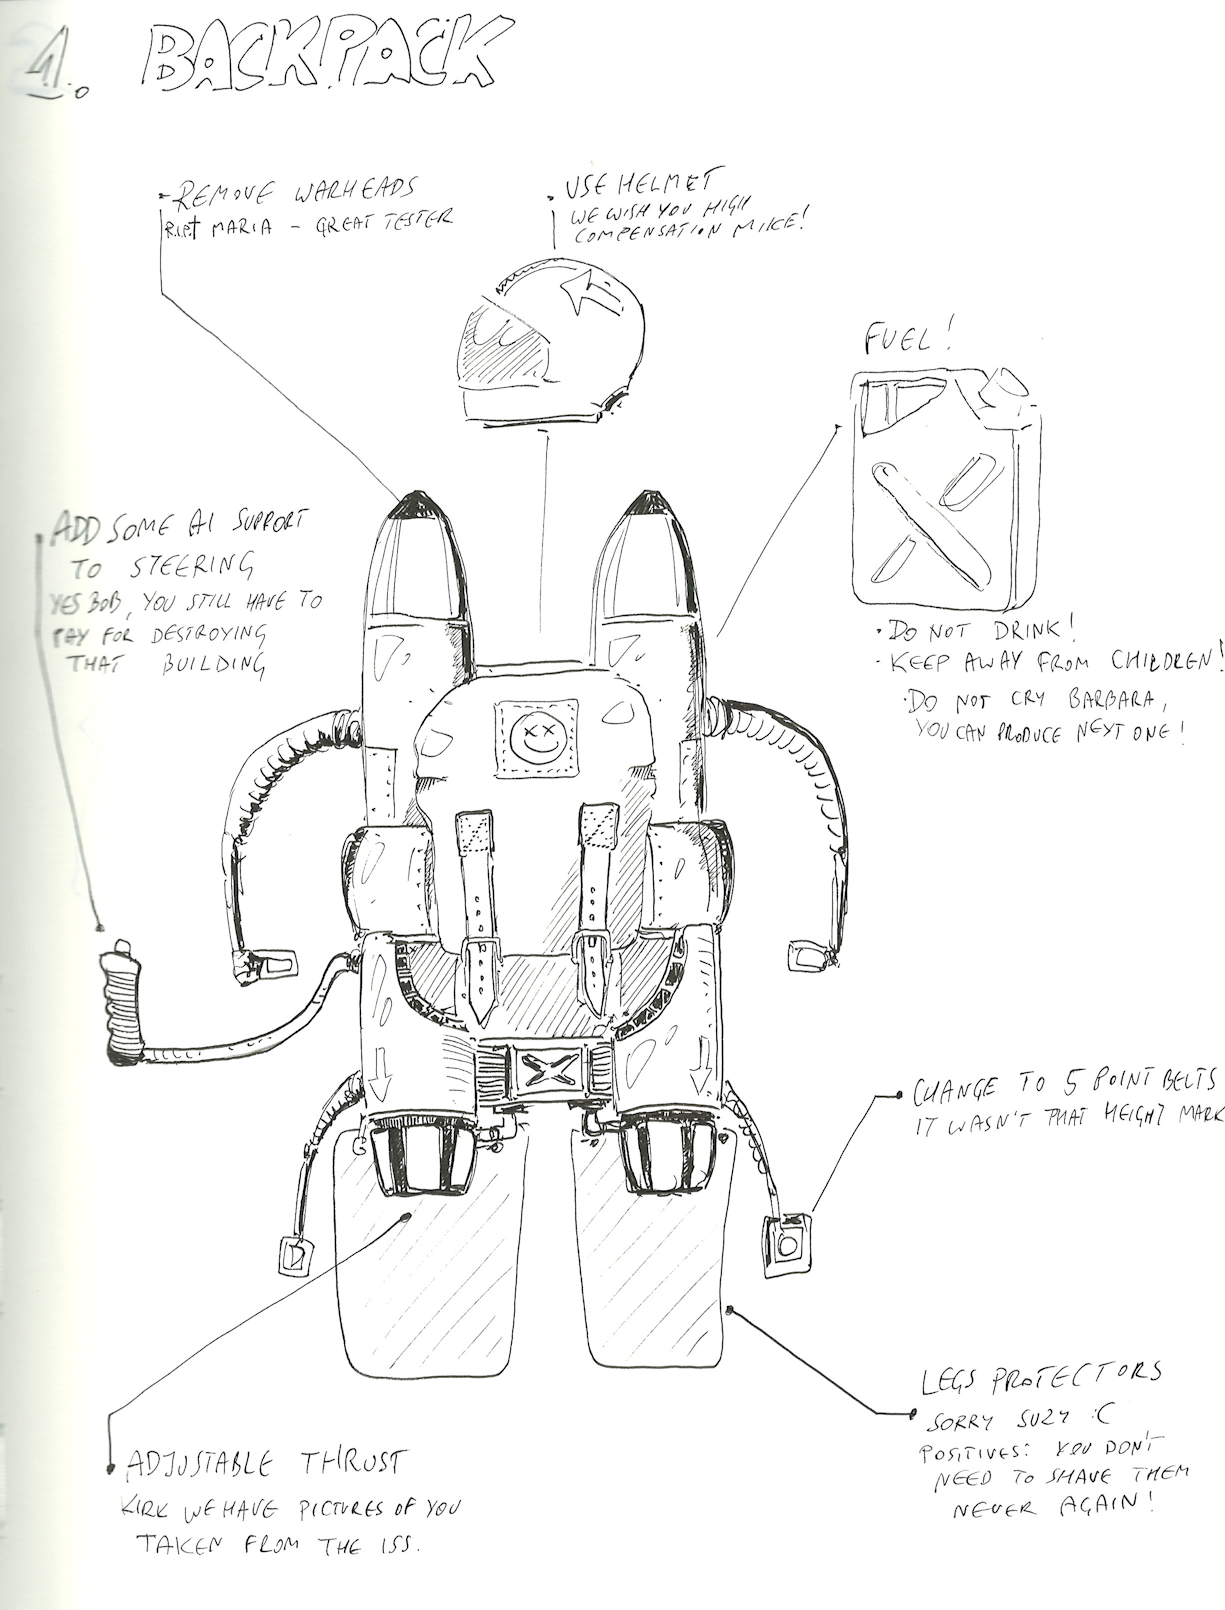 1. BACKPACK
- REMOVE WARHEADS
R.I.P.† MARIA - GREAT TESTER
. USE HELMET
WE WISH YOU HIGH
COMPENSATION MIKE!
FUEL!
· DO NOT DRINK!
· KEEP AWAY FROM CHILDREN!
· DO NOT CRY BARBARA,
YOU CAN PRODUCE NEXT ONE!
ADD SOME AI SUPPORT
TO STEERING
YES BOB, YOU STILL HAVE TO
PAY FOR DESTROYING
THAT BUILDING
CHANGE TO 5 POINT BELTS
IT WASN'T THAT HEIGHT MARK
LEGS PROTECTORS
SORRY SUZY :C
POSITIVES: YOU DON'T
NEED TO SHAVE THEM
NEVER AGAIN!
ADJUSTABLE THRUST
KIRK WE HAVE PICTURES OF YOU
TAKEN FROM THE ISS.